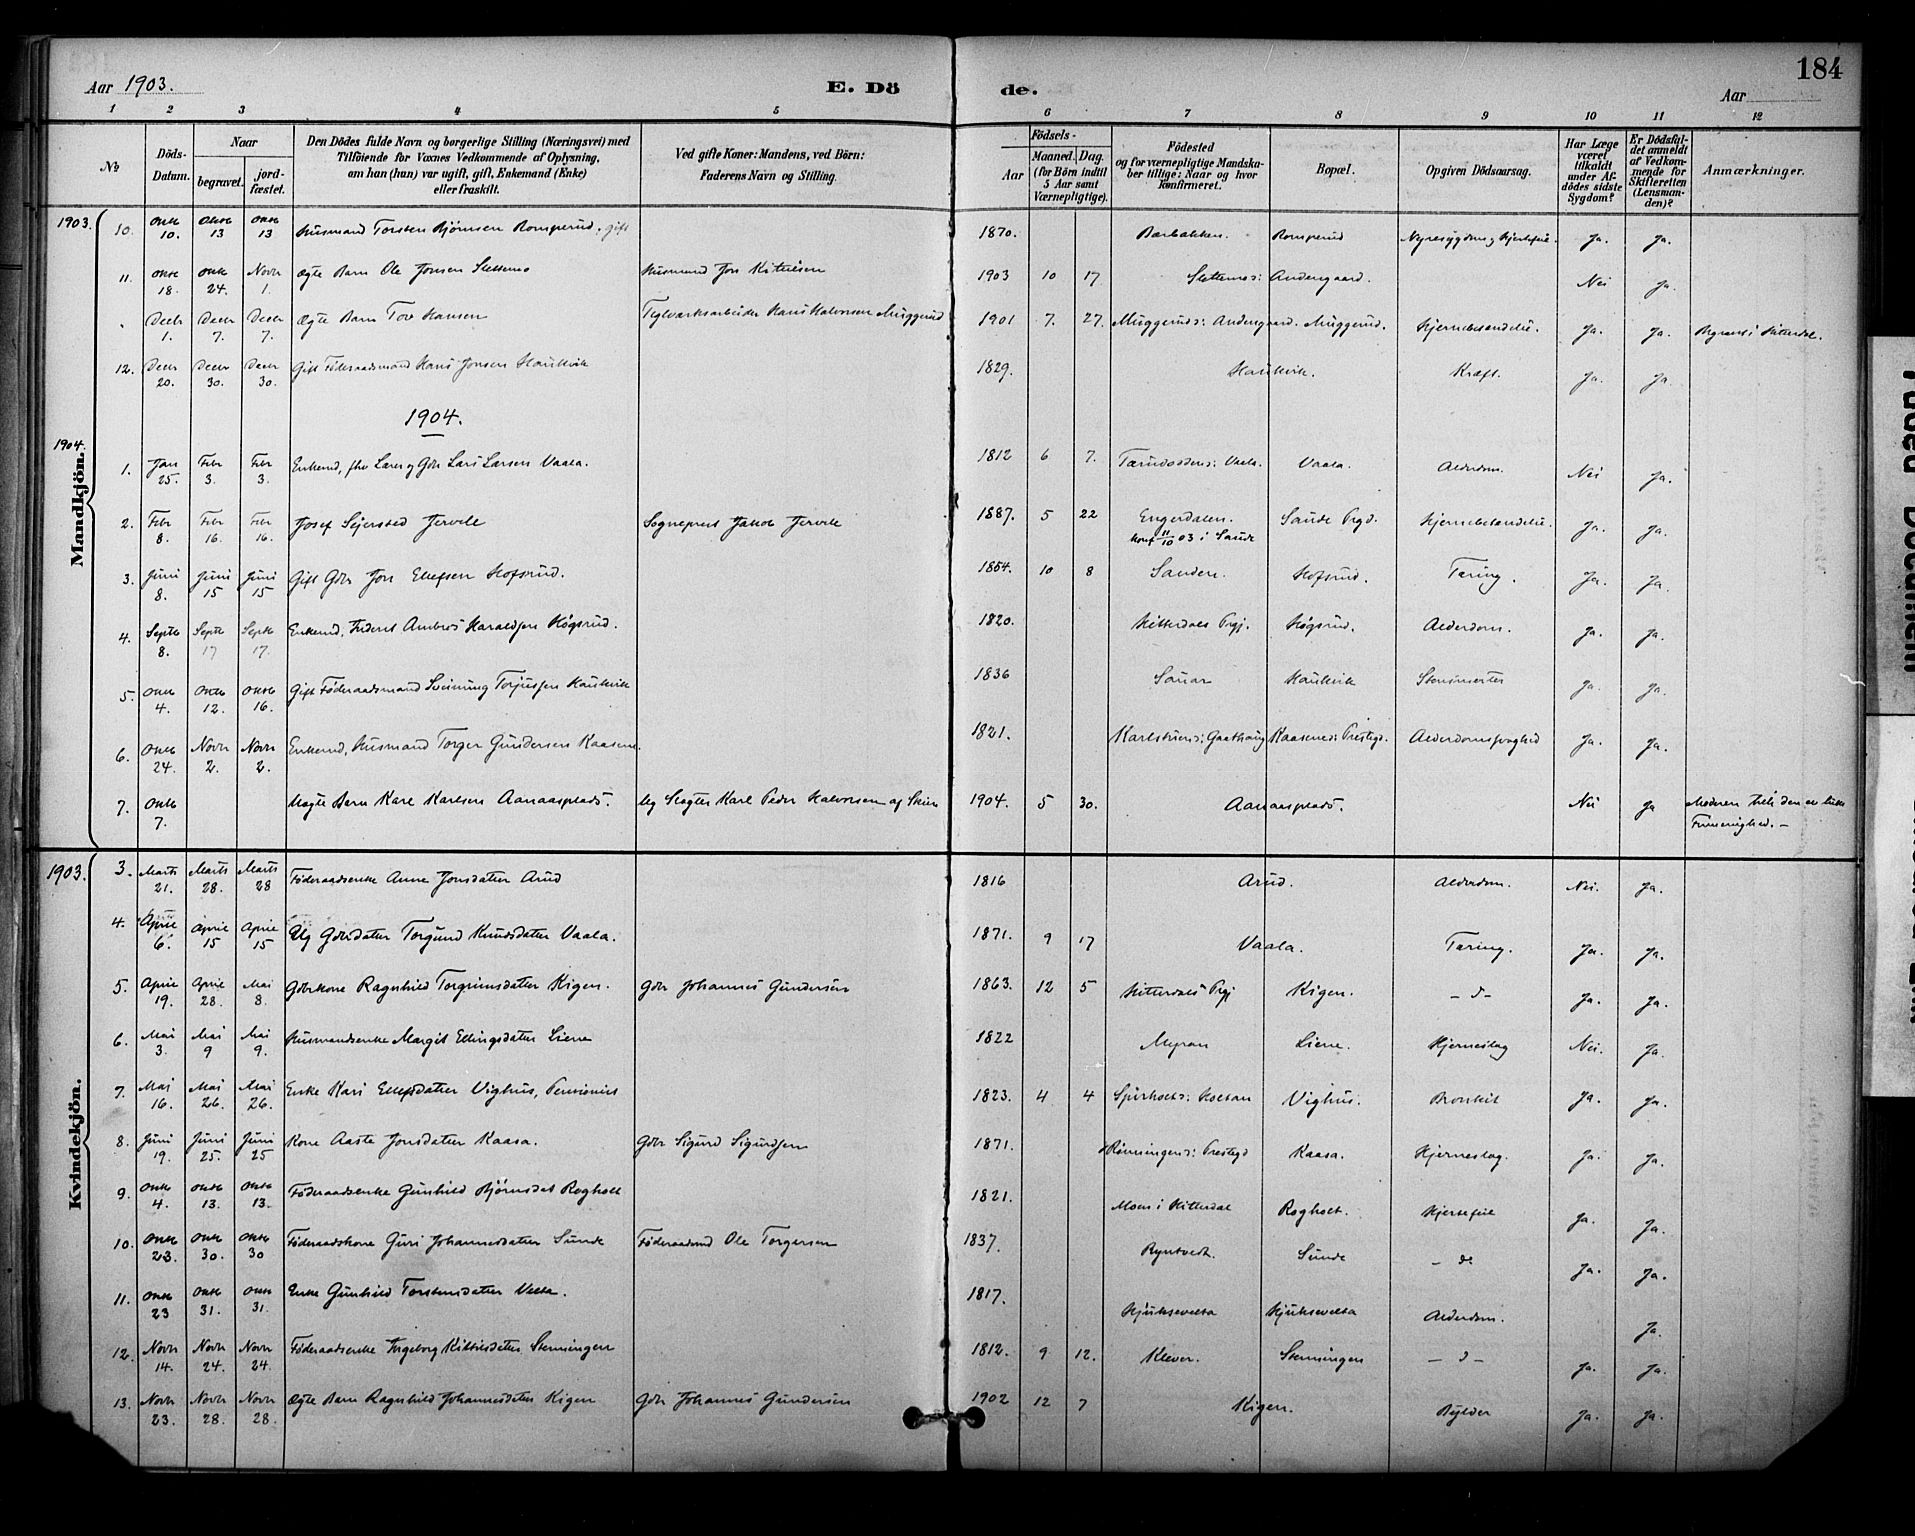 184
Aar 1903.
E. Dö
de.
Aar
1 2 3 4 5 6 7 8 9 10 11 12
No
Döds-Datum.
Naar
begravet.
jordfæstet.
Den Dödes fulde Navn og borgerlige Stilling (Næringsvei) med
Tilföiende for Voxnes Vedkommende af Oplysning,
om han (hun) var ugift, gift, Enkemand (Enke)
eller fraskilt.
Ved gifte Koner: Mandens, ved Börn:
Faderens Navn og Stilling.
Födsels-
Aar
Maaned. Dag.
(for Börn indtil
5 Aar samt
Værnepligtige).
Födested
og for værnepligtige Mandska-
ber tillige: Naar og hvor
konfirmeret.
Bopæl.
Opgiven Dödsaarsag.
Har Læge
været
tilkaldt
under Af-
dödes sidste
Sygdom?
Er Dödsfal-
det anmeldt
af Vedkom-
mende for
Skifteretten
(Lensman-
den)?
Anmærkninger.
Mandkjön.
1903.
10. Oktb 10. Oktb 13 Oktb 13 Husmand Torsten Bjørnsen Romperud. gift 1870. Bærbakken. Romperud Nyresygdom og Hjertefeil. Ja. Ja.
11. Oktb 18. Oktb 24. Novbr 1. Ægte Barn Ole Jonsen Slettemo Husmand Jon Kittilsen 1903 10 17 Slettemo s: Andengaard. Nei Ja.
Decbr 1. Decbr 7. Decbr 7. Ægte Barn Tov Hansen Teglværksarbeider Hans Halvorsen Muggerud 1901 7. 27. Muggerud s: Andengaard. Muggerud. Hjernebetændelse. Ja. Ja. Begravet i Hitterdal.
12. Decbr 20. Decbr 30. Decbr 30. Gift Føderaadsmand Hans Jonsen Haukvik 1829. Haukvik. Kræft. Ja. Ja.
1904.
1904.
1. Jan 25. Febr 3. Febr 3. Enkemd, fhv Lærer og Gbr Lars Larsen Vaala. 1812 6 7. Vaala. Vaala. Alderdom. Nei Ja.
2. Febr 8. Febr 16. Febr 16. Josef Sejersted Jervell Sogneprest Jakob Jervell 1887. 5 22 Engerdalen. Saude Prgd. Hjernebetændelse. Ja. Ja.
konf 11/10 03 i Saude
3. Juni 8. Juni 15 Juni 15 Gift Gbr Jon Ellefsen Hofsrud. 1854. 10 8 Sanden. Hofsrud. Tæring. Ja. Ja.
4. Septb 8. Septb 17 Septb 17. Enkemd, Føderd Ambros Haraldsen Høgsrud. 1820. Hitterdals Prgj. Høgsrud. Alderdom. Ja. Ja.
5. Oktb 4. Oktb 12. Oktb 16. Gift Føderaadsmand Sveinung Torjussen Haukvik 1836 Sauar Haukvik Ja. Ja.
6. Oktb 24. Novbr 2. Novbr 2. Enkemd, Husmand Torger Gundersen Kaasene. 1821. Kaasene s: Prestegd. Alderdomssvaghed Ja. Ja.
7. Oktb 7. Uægte Barn Karl Karlsen Aanaasplads. Ug Slagter Karl Peder Halvorsen af Skien 1904. 5 30. Aanaasplads. Nei Ja
Kvindekjön.
1903.
3. Marts 21. Marts 28. Marts 28 Føderaadsenke Anne Jonsdatter Arud 1816 Arud. Alderdom. Nei. Ja.
4. April 6. April 15 April 15 Ug Gbrdatter Torgund Knudsdatter Vaala. 1871. 9 17 Vaala. Tæring. Ja. Ja.
5. April 19. April 28. Mai 8. Gbrkone Ragnhild Torgrimsdatter Kigen. Gbr Johannes Gundersen 1863. 12 5 Hitterdals Prgj Kigen. - d - Ja. Ja.
6. Mai 3. Mai 9 Mai 9. Husmandsenke Margit Ellingsdatter Liene 1822 Myran Liene. Hjerneslag Nei. Ja.
7. Mai 16. Mai 26. Mai 26. Enke Kari Ellefsdatter Vighus, Pensionist 1823. 4 4 Vighus. Bronkit Ja. Ja.
8. Juni 19. Juni 25. Juni 25 Kone Aaste Jonsdatter Kaasa. Gbr Sigurd Sigurdsen 1871. Rønningen s: Prestegd Kaasa. Hjerneslag. Ja. Ja.
9. Oktb 4. Oktb 13. Oktb 13. Føderaadsenke Gunhild Bjørnsdat Rogholt 1821. Moen i Hitterdal Rogholt. Hjertefeil Ja. Ja.
10. Oktb 23. Oktb 30. Oktb 30 Føderaadskone Guri Johannesdatter Sunde Føderaadsmd Ole Torgersen 1837. Ryntveit. Sunde - do Ja. Ja.
11. Oktb 23 Oktb 31. Oktb 31. Enke Gunhild Torstensdatter Velta. 1817. Hjuksevelta Hjuksevelta Alderdom. Ja.
12. Novbr 14. Novbr 24. Novbr 24. Føderaadsenke Ingeborg Kittilsdatter Stenningen 1812. 9 12. Klever. Stenningen - d - Ja. Ja.
13. Novbr 23. Novbr 28. Novbr 28. Ægte Barn Ragnhild Johannesdatter Kigen Gbr Johannes Gundersen 1902 12 7 Kigen. Bylder Ja. Ja.